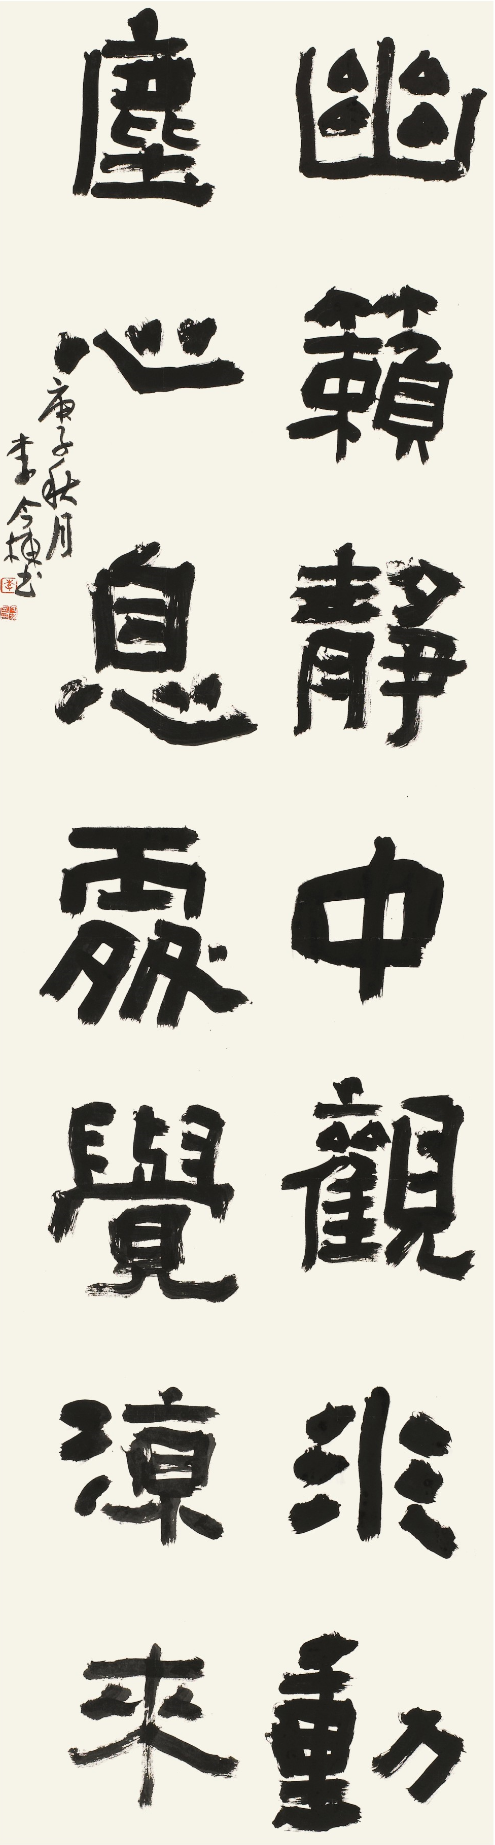 幽籟靜中觀水動
塵心息處覺涼來
庚子秋月
李今書